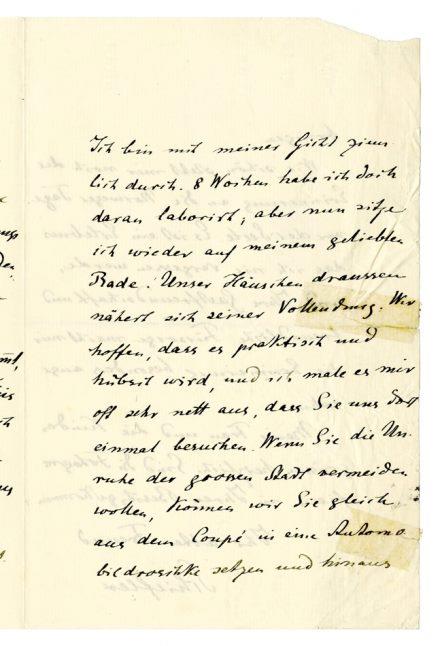 Ich bin mit meiner Gicht ziem
lich durch. 8 Wochen habe ich doch
daran laborirt; aber nun sitze
ich wieder auf meinem geliebten
Rade. Unser Häuschen draussen
nähert sich seiner Vollendung. Wir
hoffen, dass es praktisch und
hübsch wird, und ich male es mir
oft sehr nett aus, dass Sie uns dort
einmal besuchen. Wenn Sie die Un
ruhe der grossen Stadt vermeiden
wollen, können wir Sie gleich
aus dem Coupé in eine Automo
bildroschke setzen und hinaus